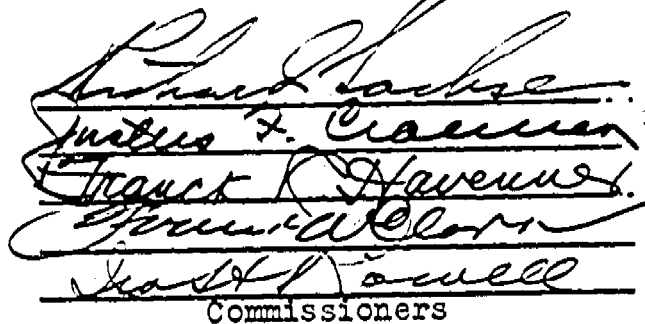 Richard Sachse
Justus F. Craemer
Franck R. Havenner
Ray L. Riley
Commissioners